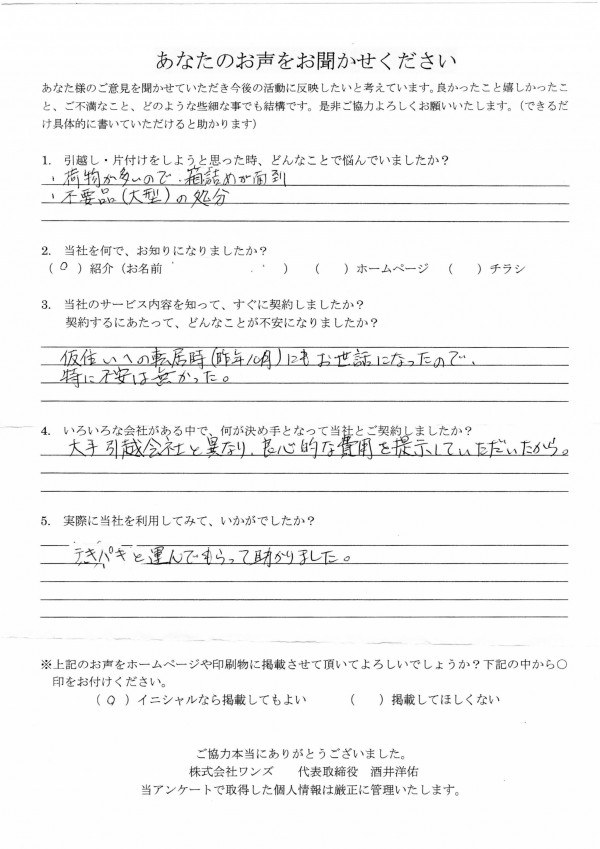 あなたのお声をお聞かせください
あなた様のご意見を聞かせていただき今後の活動に反映したいと考えています。良かったこと嬉しかったこ
と、ご不満なこと、どのような些細な事でも結構です。是非ご協力よろしくお願いいたします。（できるだ
け具体的に書いていただけると助かります）
1. 引越し・片付けをしようと思った時、どんなことで悩んでいましたか？
・荷物が多いので、箱詰めが面倒
・不要品（大型）の処分
2. 当社を何で、お知りになりましたか？
（ ○ ）紹介（お名前 ） （ ）ホームページ （ ）チラシ
3. 当社のサービス内容を知って、すぐに契約しましたか？
契約するにあたって、どんなことが不安になりましたか？
仮住いへの転居時（昨年 月）にもお世話になったので、
特に不安は無かった。
4. いろいろな会社がある中で、何が決め手となって当社とご契約しましたか？
大手引越会社と異なり、良心的な費用を提示していただいたから。
5. 実際に当社を利用してみて、いかがでしたか？
テキパキと運んでもらって助かりました。
※上記のお声をホームページや印刷物に掲載させて頂いてよろしいでしょうか？下記の中から○
印をお付けください。
（ ○ ）イニシャルなら掲載してもよい （ ）掲載してほしくない
ご協力本当にありがとうございました。
株式会社ワンズ 代表取締役 酒井洋佑
当アンケートで取得した個人情報は厳正に管理いたします。